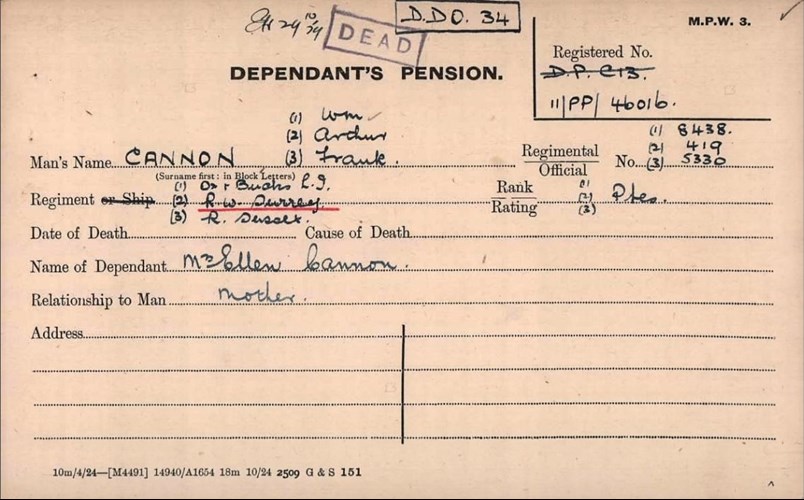 D.D.O. 34
M.P.W. 3.
DEAD
Registered No.
D.P. C13.
11/PP/ 46016.
DEPENDANT'S PENSION.
(1) Wm
(2) Arthur
Man's Name CANNON (3) Frank.
(Surname first: in Block Letters)
Regimental
Official No.
(1) 8438.
(2) 419
(3) 5330
(1) Ox & Bucks L.I.
Regiment or Ship (2) R.W. Surrey
(3) R. Sussex.
Rank
Rating
(1)
(2) Ptes.
(3)
Date of Death Cause of Death
Name of Dependant Mrs Ellen Cannon.
Relationship to Man Mother.
Address
10m/4/24—[M4491] 14940/A1654 18m 10/24 2509 G & S 151